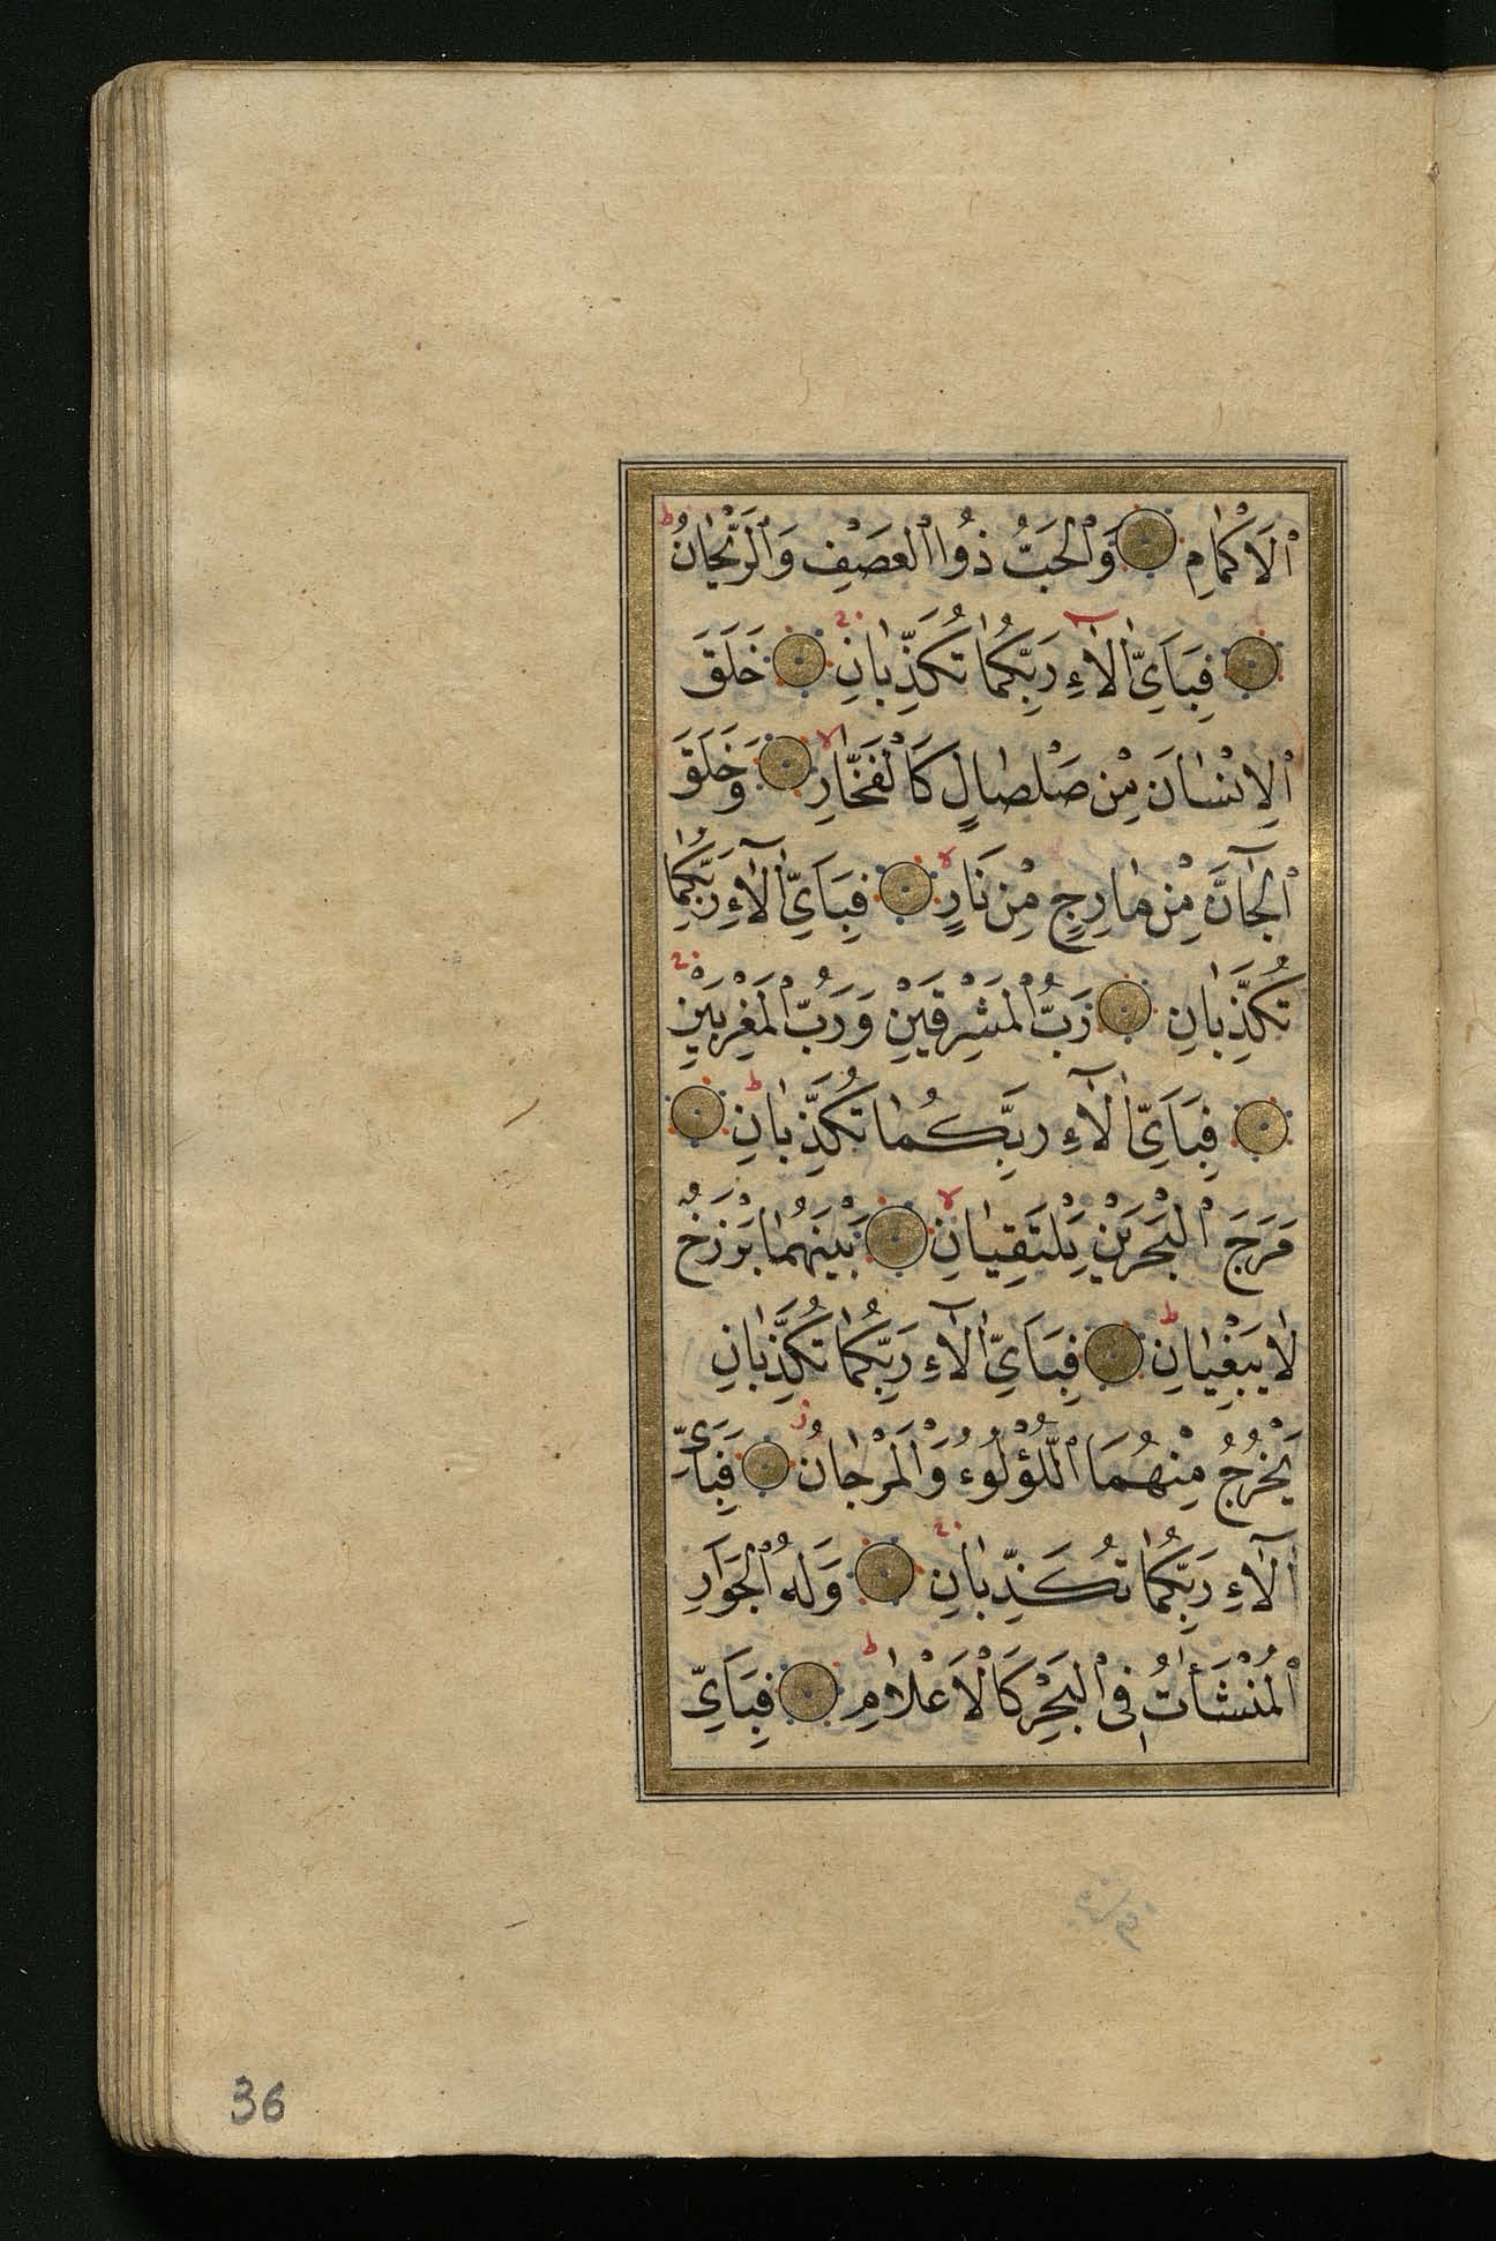 ٱلْاَكْمَامِ وَٱلْحَبُّ ذُواٱلْعَصْفِ وَٱلرَّيْحَانُ
فَبِاَىِّ اٰلَآءِ رَبِّكُمَا تُكَذِّبَانِ خَلَقَ
ٱلْاِنْسَانَ مِنْ صَلْصَالٍ كَالْفَخَّارِ وَخَلَقَ
ٱلْجَآنَّ مِنْ مَارِجٍ مِنْ نَارٍ فَبِاَىِّ اٰلَآءِ رَبِّكُمَا
تُكَذِّبَانِ رَبُّ ٱلْمَشْرِقَيْنِ وَرَبُّ ٱلْمَغْرِبَيْنِ
فَبِاَىِّ اٰلَآءِ رَبِّكُمَا تُكَذِّبَانِ
مَرَجَ ٱلْبَحْرَيْنِ يَلْتَقِيَانِ بَيْنَهُمَا بَرْزَخٌ
لَا يَبْغِيَانِ فَبِاَىِّ اٰلَآءِ رَبِّكُمَا تُكَذِّبَانِ
يَخْرُجُ مِنْهُمَا ٱللُّؤْلُوءُ وَٱلْمَرْجَانُ فَبِاَىِّ
اٰلَآءِ رَبِّكُمَا تُكَذِّبَانِ وَلَهُ ٱلْجَوَارِ
ٱلْمُنْشَأٰتُ فِى ٱلْبَحْرِ كَالْاَعْلَامِ فَبِاَىِّ
36